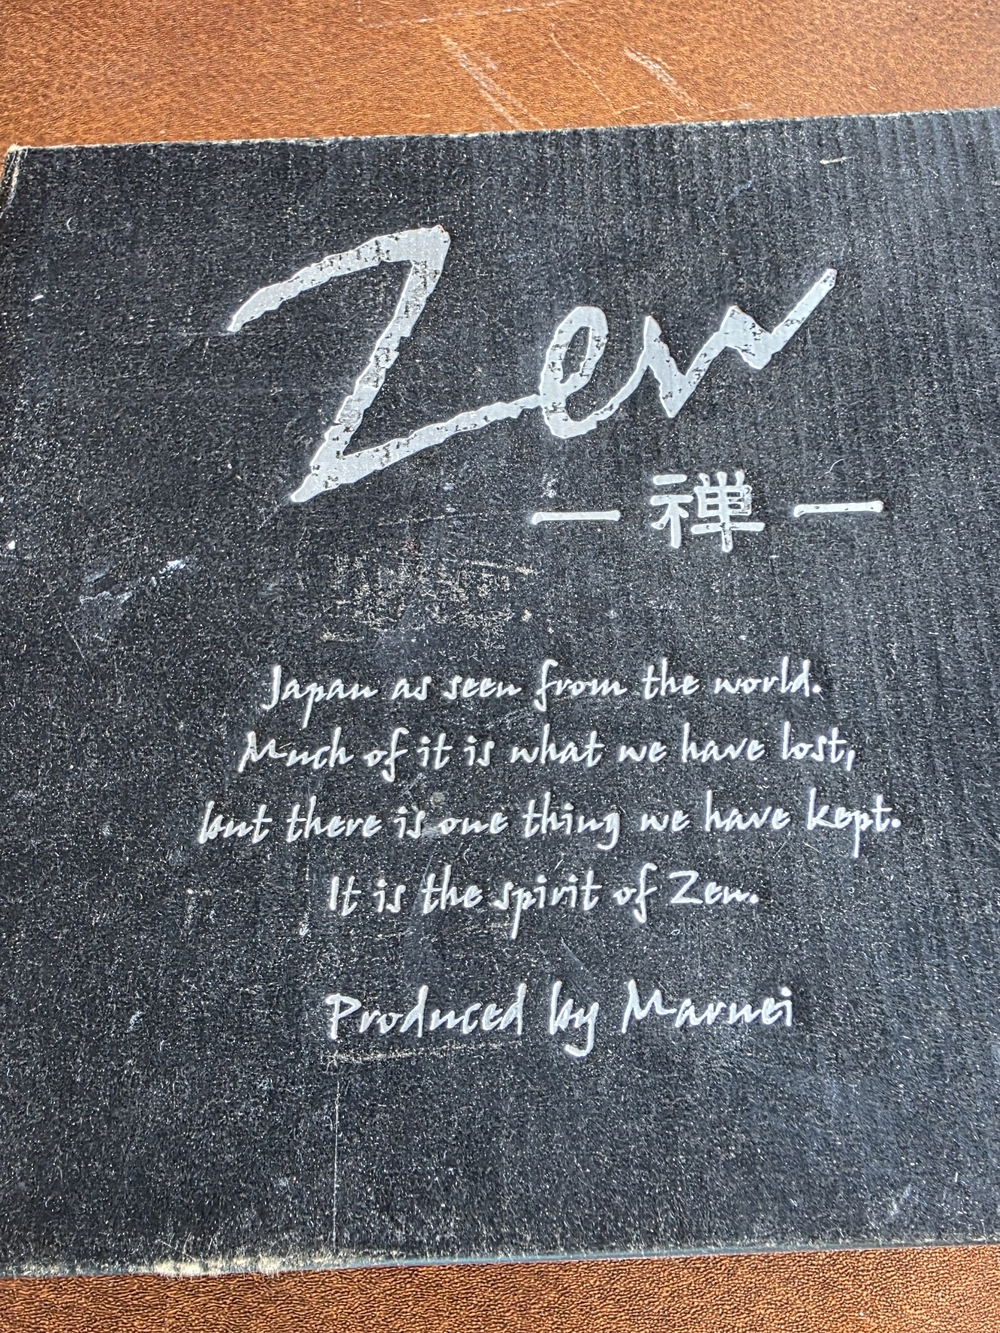 Zen
― 禅 ―
Japan as seen from the world.
Much of it is what we have lost,
but there is one thing we have kept.
It is the spirit of Zen.
Produced by Maruei